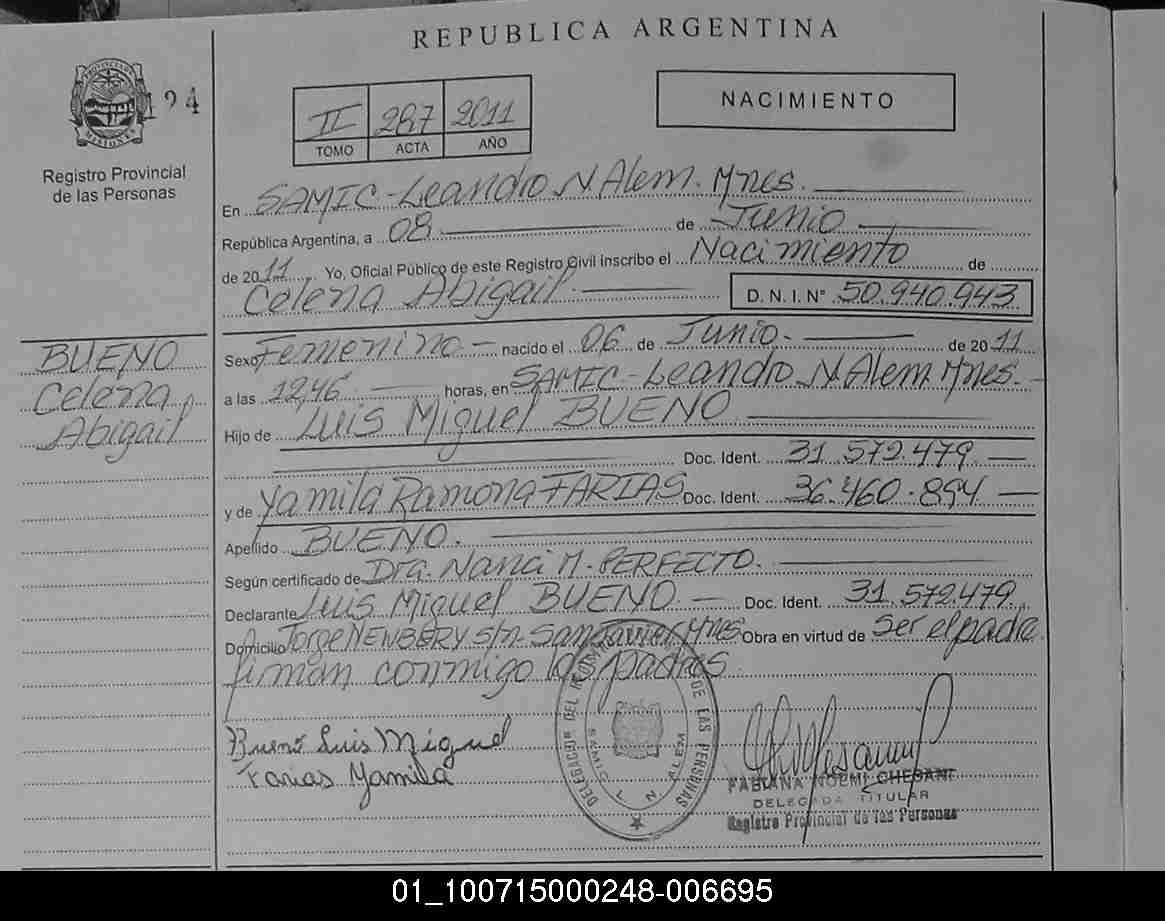 REPUBLICA ARGENTINA
PROVINCIA DE MISIONES
194
Registro Provincial
de las Personas
II 287 2011
TOMO ACTA AÑO
NACIMIENTO
En SAMIC - Leandro N Alem. Mnes.
República Argentina, a 08 de Junio
de 2011 Yo, Oficial Público de este Registro Civil inscribo el Nacimiento de
Celena Abigail D. N. I. N° 50.940.943
BUENO
Celena
Abigail
Sexo Femenino - nacido el 06 de Junio. de 2011
a las 12,46 horas, en SAMIC - Leandro N Alem Mnes.
Hijo de Luis Miguel BUENO
Doc. Ident. 31.572.479
y de Yamila Ramona FARIAS Doc. Ident. 36.460.894
Apellido BUENO.
Según certificado de Dra. Nanci M. PERFECTO.
Declarante Luis Miguel BUENO - Doc. Ident. 31.572.479
Domicilio Jorge NEWBERY s/n - San Javier Mnes Obra en virtud de Ser el padre
firman conmigo los padres
Bueno Luis Miguel
Farias Yamila
DE LAS PERSONAS
SAMIC L. N. ALEM
FABIANA NOEMI CHESANI
DELEGADA TITULAR
Registro Provincial de las Personas
01_100715000248-006695